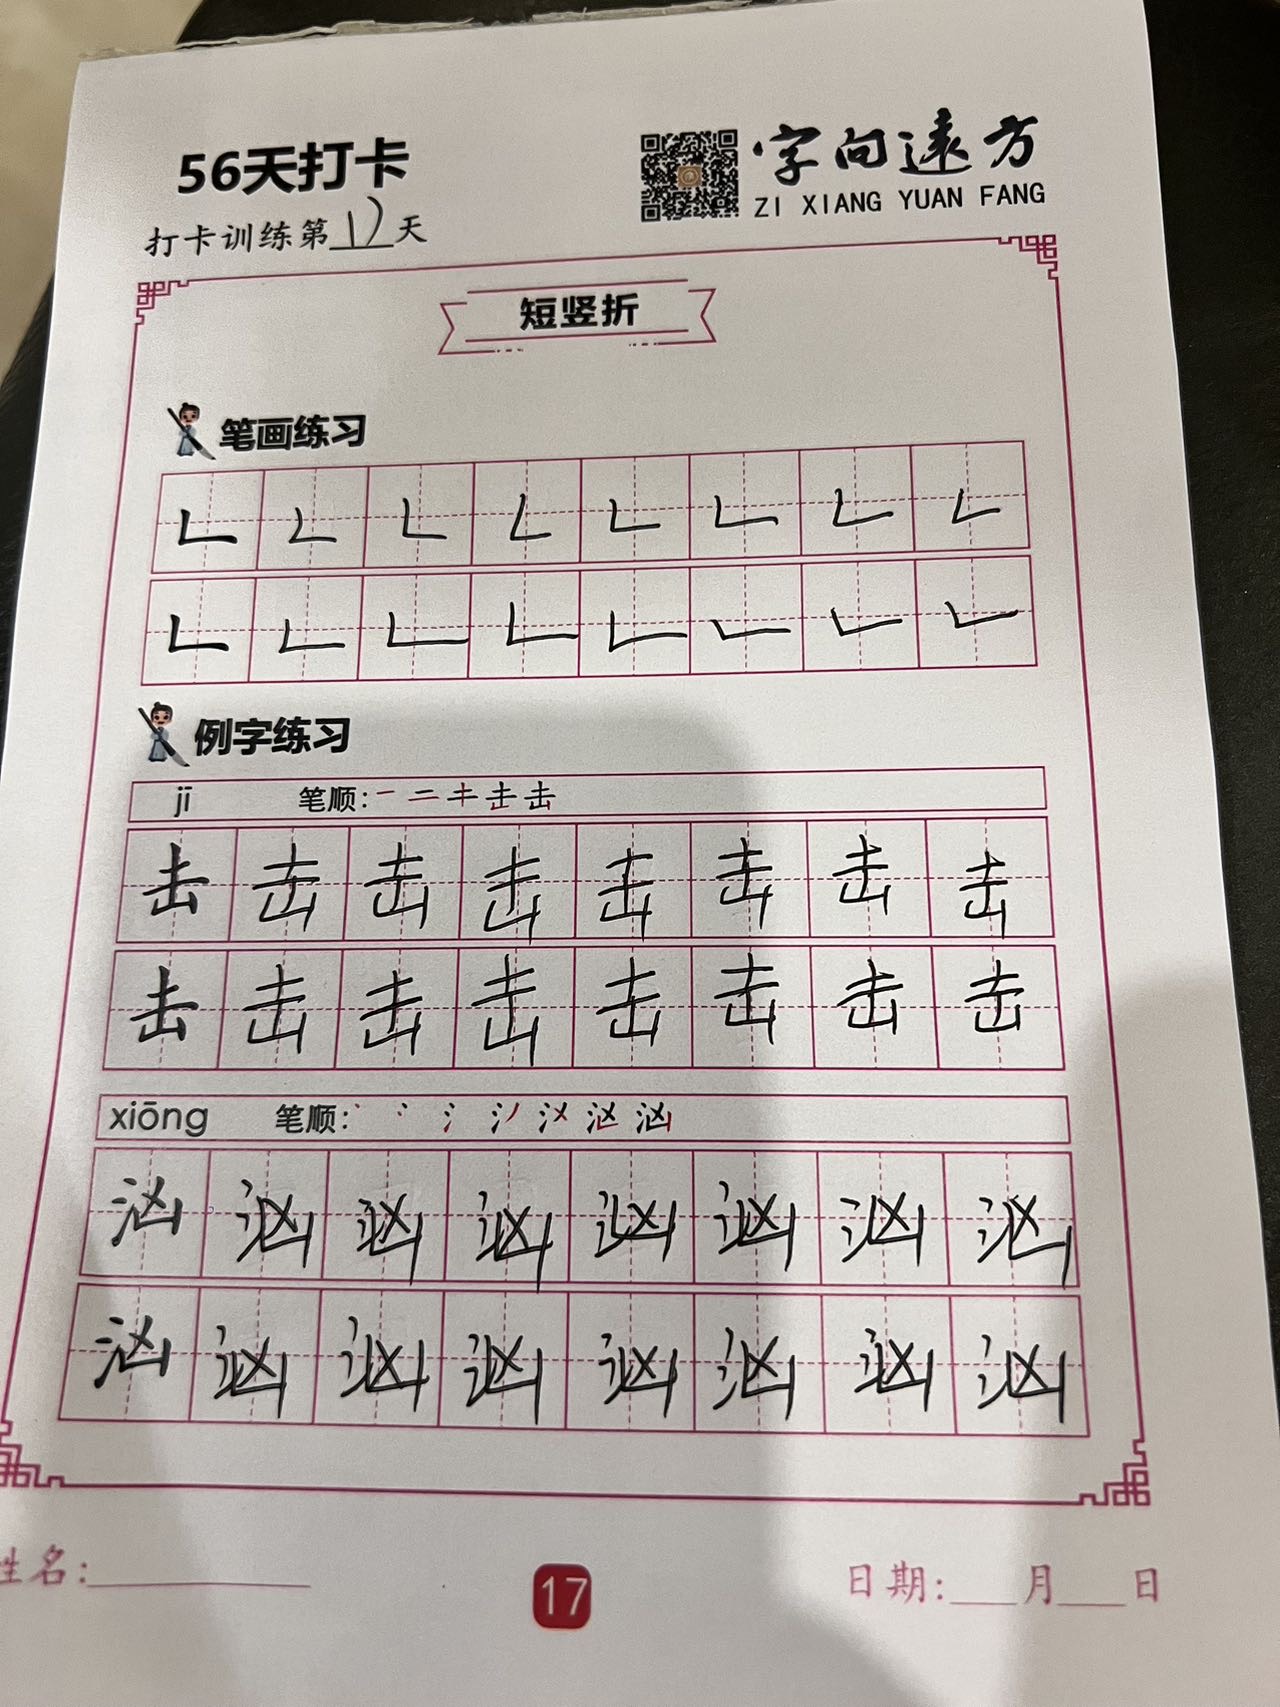 56天打卡
字向远方
ZI XIANG YUAN FANG
打卡训练第17天
短竖折
笔画练习
𠃊 𠃊 𠃊 𠃊 𠃊 𠃊 𠃊 𠃊
𠃊 𠃊 𠃊 𠃊 𠃊 𠃊 𠃊 𠃊
例字练习
jī 笔顺:一 二 キ 击 击
击 击 击 击 击 击 击 击
击 击 击 击 击 击 击 击
xiōng 笔顺: 汹
汹 汹 汹 汹 汹 汹 汹 汹
汹 汹 汹 汹 汹 汹 汹 汹
姓名:
17
日期:___月___日